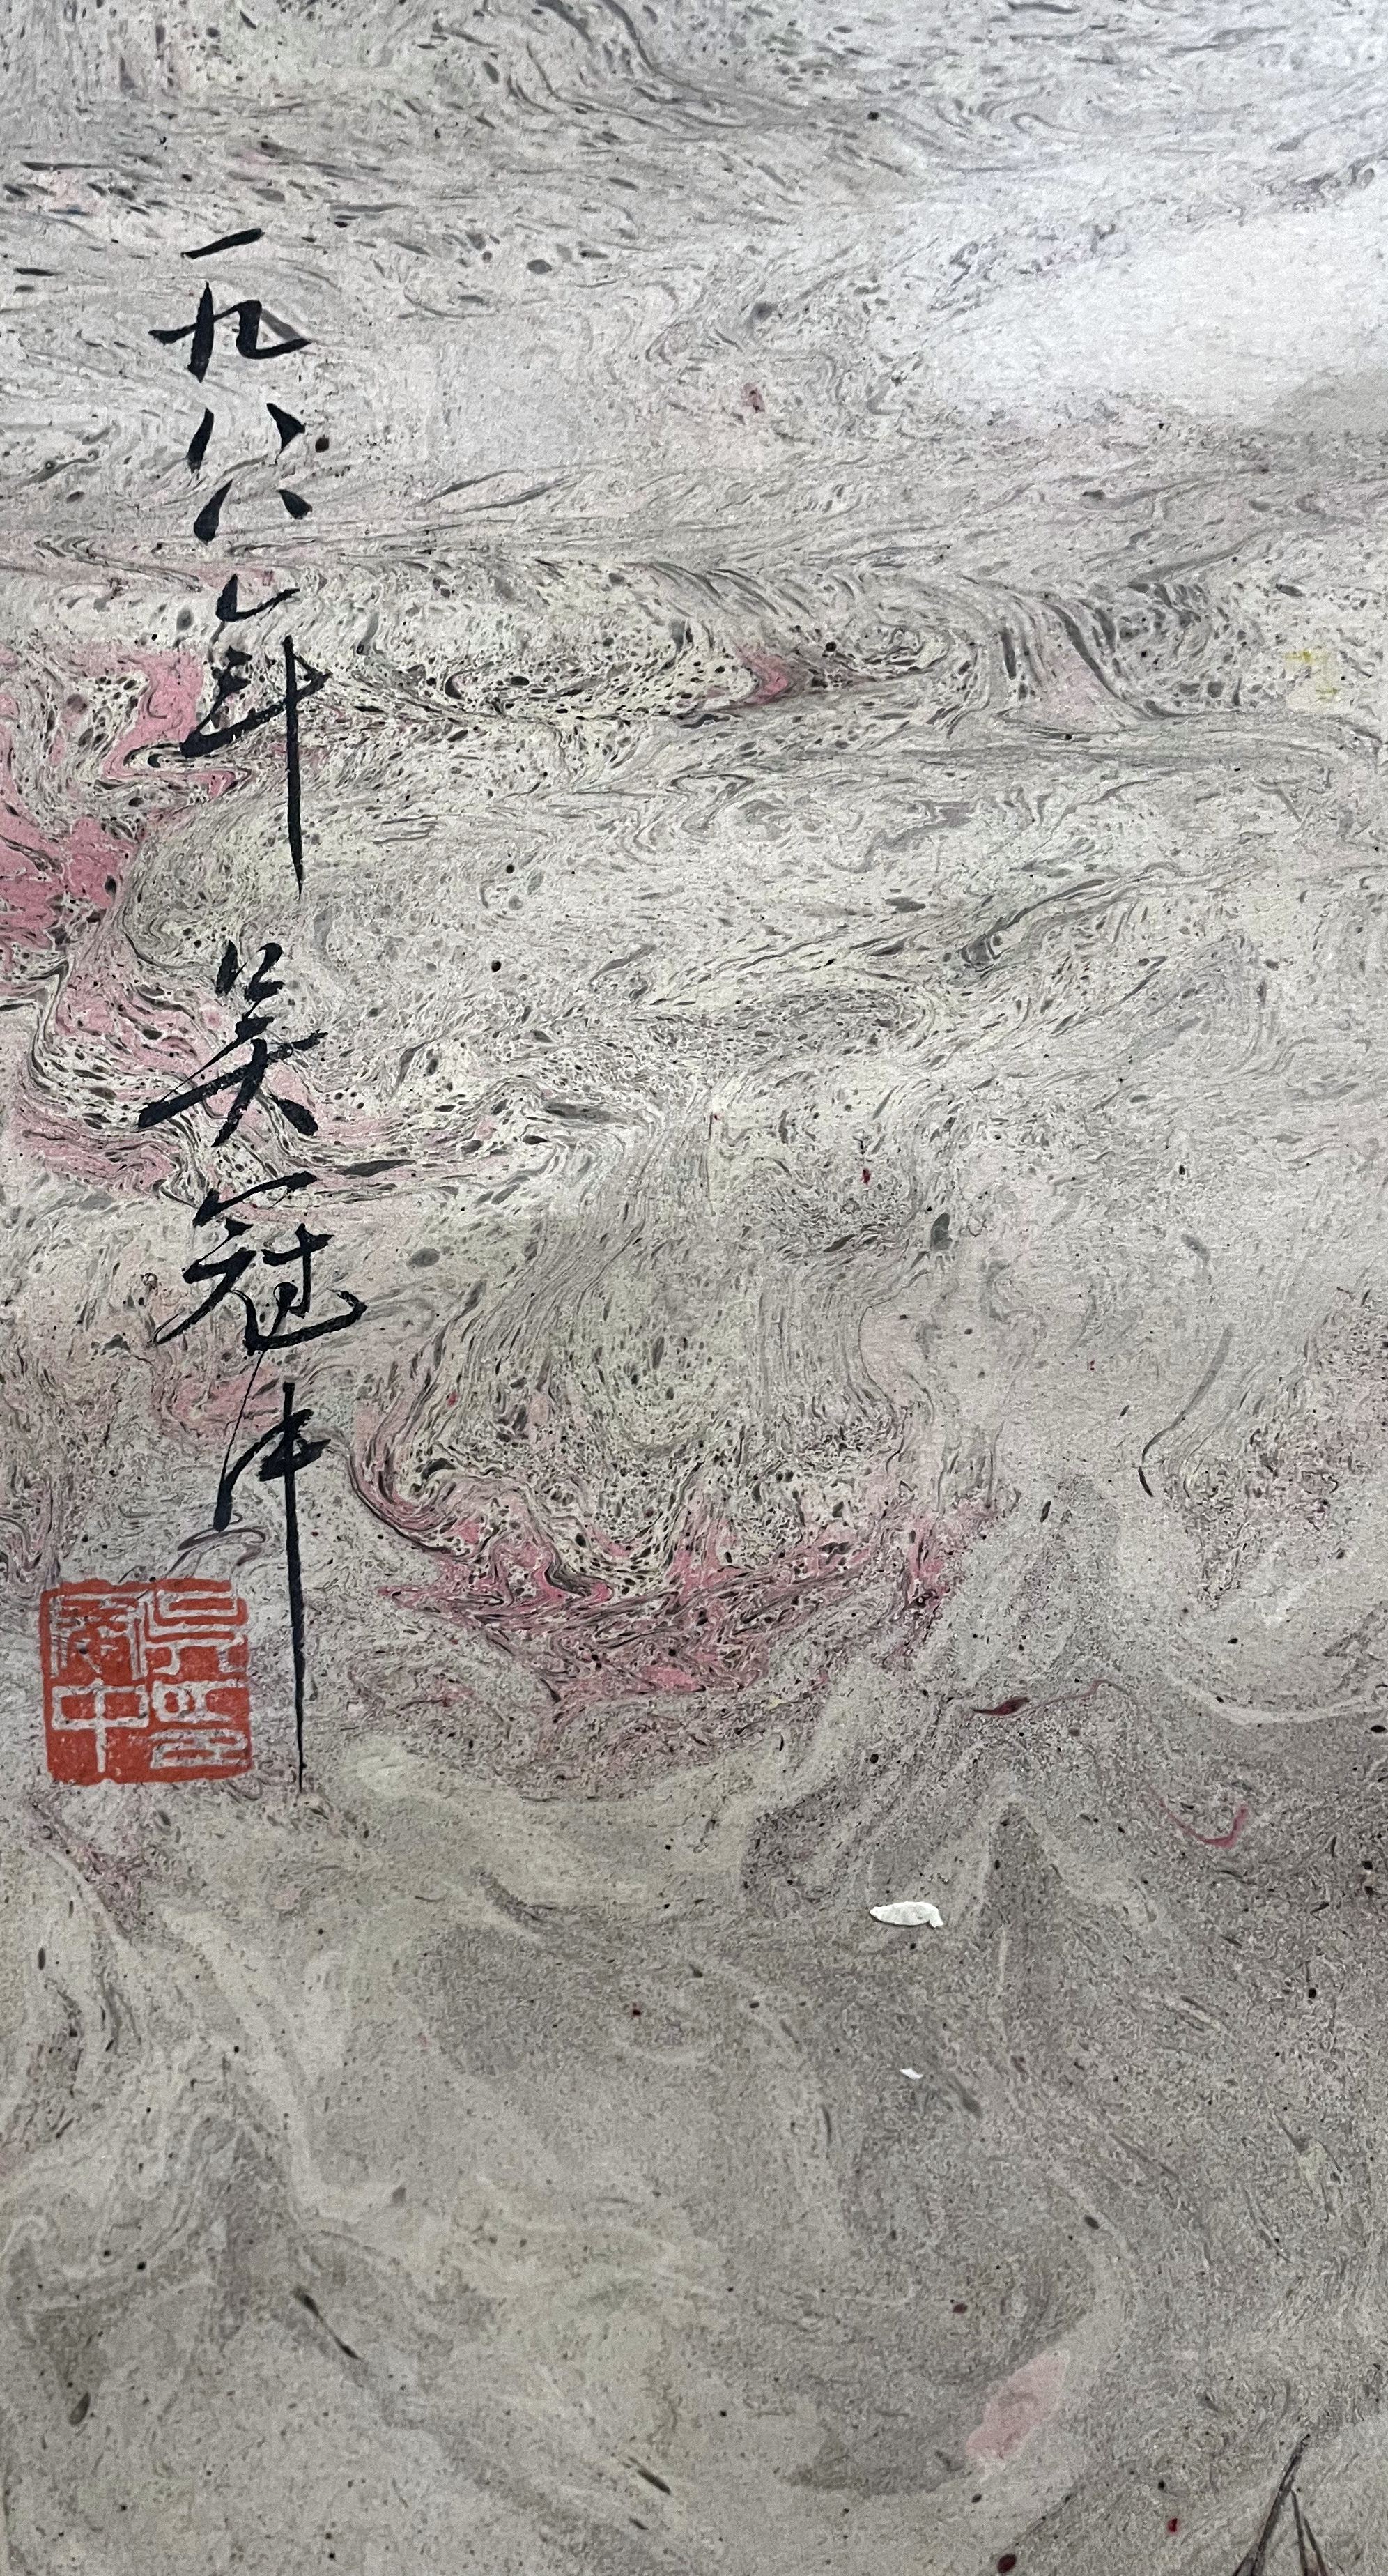 一九八八年 吴冠中
吴印
冠中